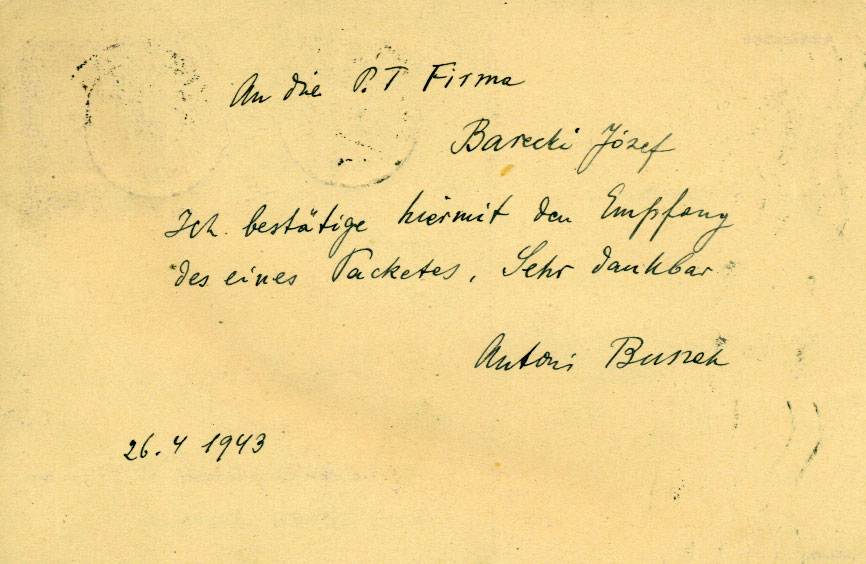 An die P.T Firma
Barecki Józef
Ich bestätige hiermit den Empfang
des eines Packetes, Sehr dankbar
Antoni Buszek
26.4 1943